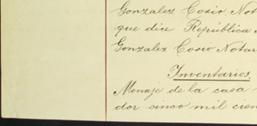 Gonzalez Cosio Not
que dice República
Gonzalez Cosio Notar
Inventarios
Menaje de la casa
dor cinco mil cien